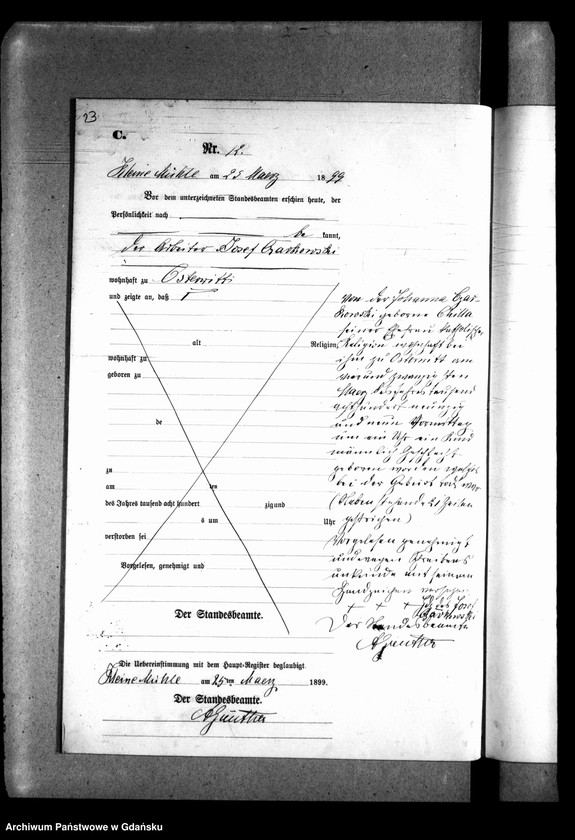 23
C.
Nr. 12.
Kleine Mühle am 25 Maerz 1899
Vor dem unterzeichneten Standesbeamten erschien heute, der
Persönlichkeit nach
be kannt,
der Arbeiter Josef Czarkowski
wohnhaft zu Osterwitt
und zeigte an, daß
alt Religion,
wohnhaft zu
geboren zu
de
zu
am ten
des Jahres tausend acht hundert zig und
s um Uhr
verstorben sei
Vorgelesen, genehmigt und
von der Johanna Czar-
kowski geborene
seiner Ehefrau katholischer
Religion wohnhaft bei
ihm zu Osterwitt am
vierundzwanzigsten
Maerz des Jahres tausend
achthundert neunzig
und neun Vormittag
um ein Uhr ein Kind
männlich Geschlecht
geboren worden welches
bei der Geburt todt war
(Nebenstehende Zeilen
gestrichen)
Vorgelesen genehmigt
und wegen Schreibens
unkunde mit seinem
Handzeichen versehen
+ + + Josef
Czarkowski
Der Standesbeamte
AGünther
Der Standesbeamte.
Die Uebereinstimmung mit dem Haupt-Register beglaubigt.
Kleine Mühle am 25ten Maerz 1899.
Der Standesbeamte.
AGünther
Archiwum Państwowe w Gdańsku